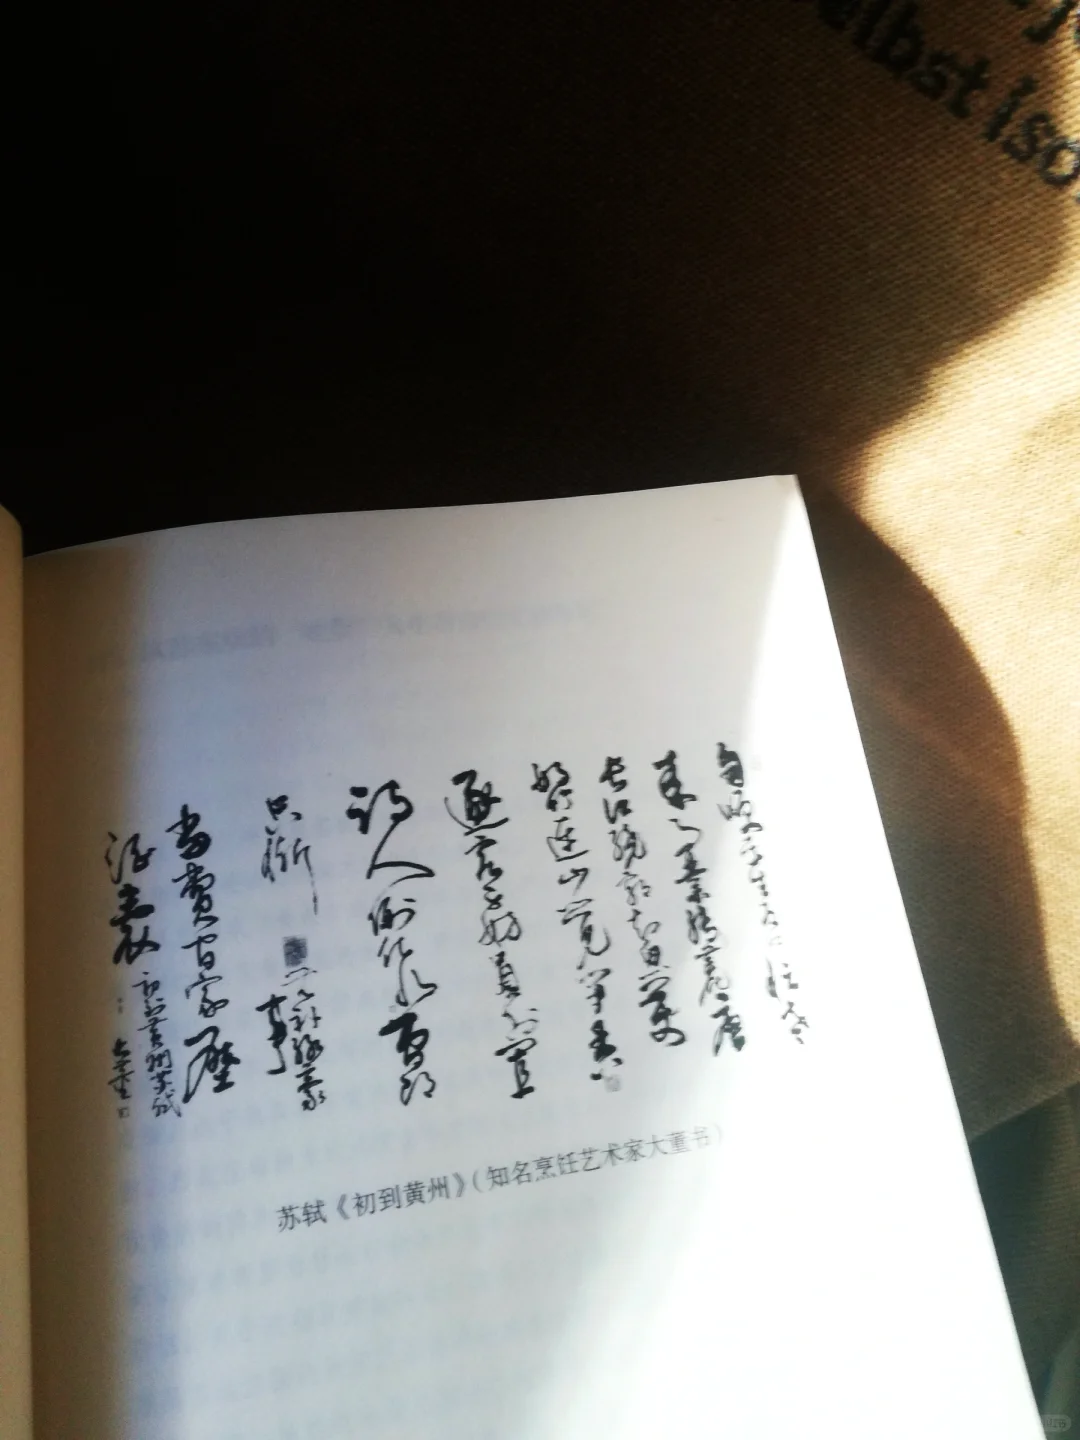 elbst iso
自笑平生为口忙老
来事業转荒唐
长江绕郭知鱼美
好竹连山觉笋香
逐客不妨員外置
诗人例作水曹郎
只惭
无补丝毫
事
尚費官家壓
酒囊
初到黄州苏轼
苏轼《初到黄州》(知名烹饪艺术家大董书)